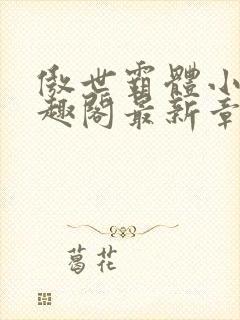 傲世霸體小
趣閣最新章
葛花